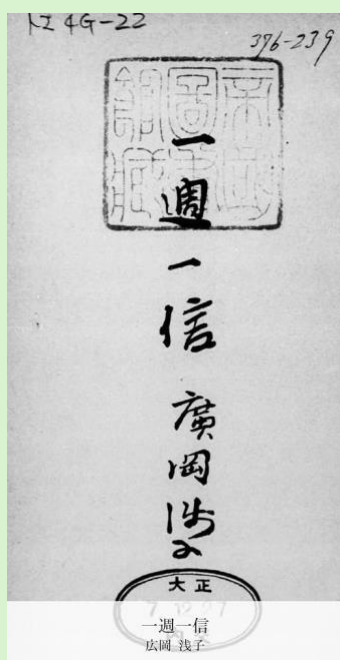 4G-22
396-239
帝国
図書
館蔵
一週一信
廣岡浅子
大正
一週一信
広岡 浅子